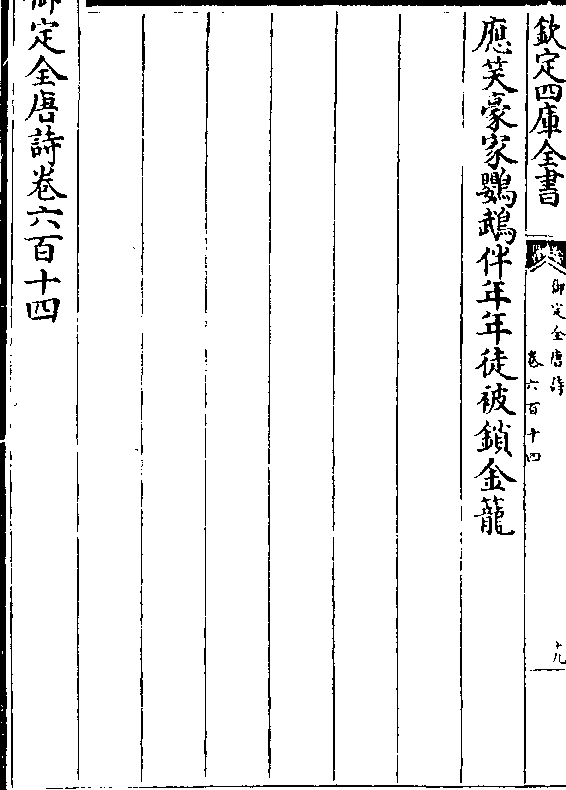 欽定四庫全書
御定全唐詩
卷六百十四
十九
應笑豪家鸚鵡伴年年徒被鎖金籠
御定全唐詩卷六百十四